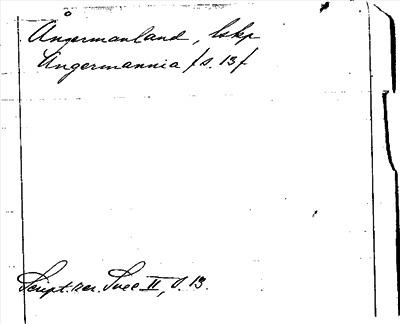 Ångermanland, lskp
Angermannia /s. 13/
Script. rer. Svec II, s. 13.